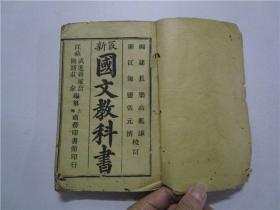 最新
福建長樂高鳳謙
浙江海鹽張元濟
校訂
國文教科書
江蘇武進蔣維喬
陽湖莊俞
編纂
上海商務印書館印行